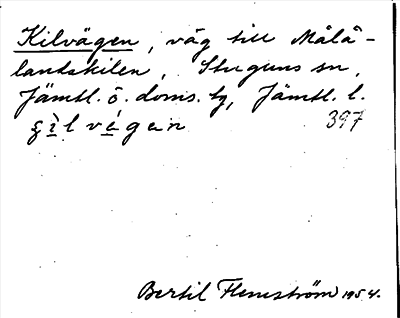 Kilvägen, väg till Målå-
landskilen, Stuguns sn,
Jämtl. ö. doms. tg, Jämtl. l.
ʂìlvégan 397
Bertil Flemström 1954.